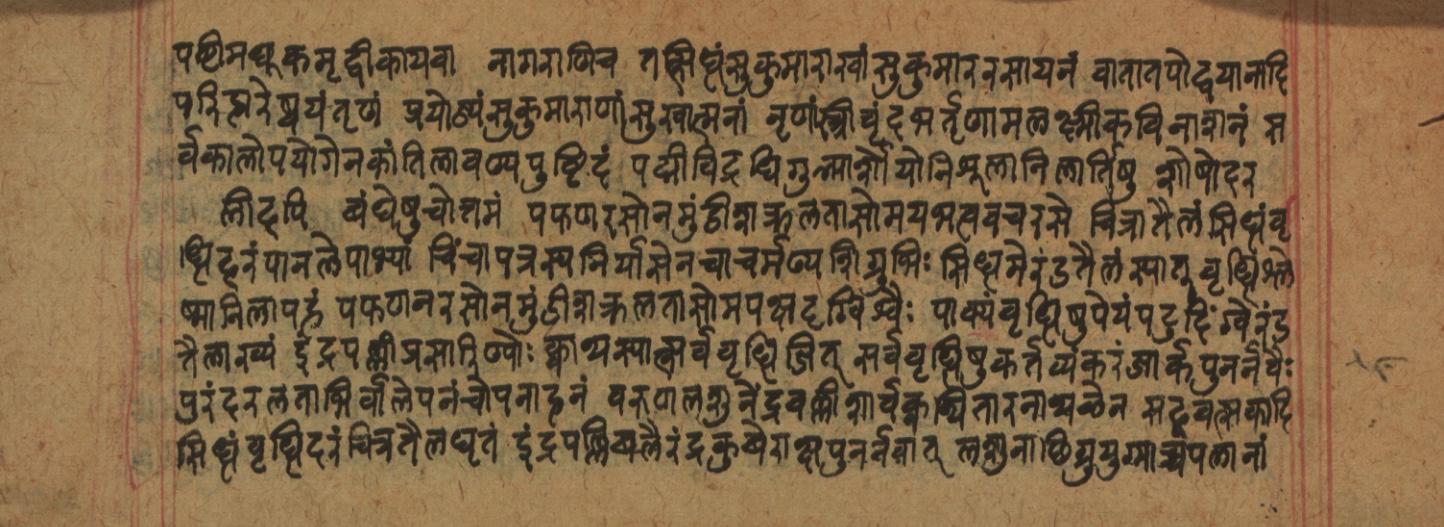 पष्टिमधूकमृद्वीकायवा नागराणिच तत्सिद्धंसुकुमाराख्यंसुकुमाररसायनं वातातपोद्वयानादि
परिहारेष्वयंतृणं प्रयोज्यंसुकुमाराणांसुखात्मनां नृणांस्त्रीवृंदभर्तृणामलक्ष्मीकविनाशनं स
र्वकालोपयोगेनकांतिलावण्यपुष्टिदं पद्मीविद्रधिगुल्मार्शोयोनिशूलानिलार्तिषु शोषोदर
लीद्दपि बंधेषुचोत्तमं पफणरसोनमुंडीशक्रलतासोमयभत्ववचरसे चित्रातैलंसिद्धंवृ
द्धिहरंपानलेपाभ्यां चिंचापत्रस्यनिर्यासेनचाचर्मण्यशिग्रुभिः सिद्धमेरंडतैलंस्यातूवृद्धिंश्ले
ष्मानिलापहं पफणनरसोनमुंडीशक्रलतासोमपक्षदृग्विश्वैः पाक्यंवृद्धिषुपेयंपटुहिंग्वेरंड
तैलाख्यं इंद्रपल्लीप्रसारिण्योः क्वाथस्यात्सर्ववृद्धिजित् सर्ववृद्धिषुकर्तव्यंकरंजार्कपुनर्नवैः
पुरंदरलताभिर्वालेपनंचोपनाहनं वरुणलशुनेंद्रवल्लीशार्यक्वथितारनाथ्यच्छेन सदुवत्सकादि
सिद्धंवृद्धिहरंचित्रतैलघृतं इंद्रपल्लिबलैरंद्रकुबेराक्षपुनर्नवात् लशुनाछिग्रुयुग्माच्चपलानां